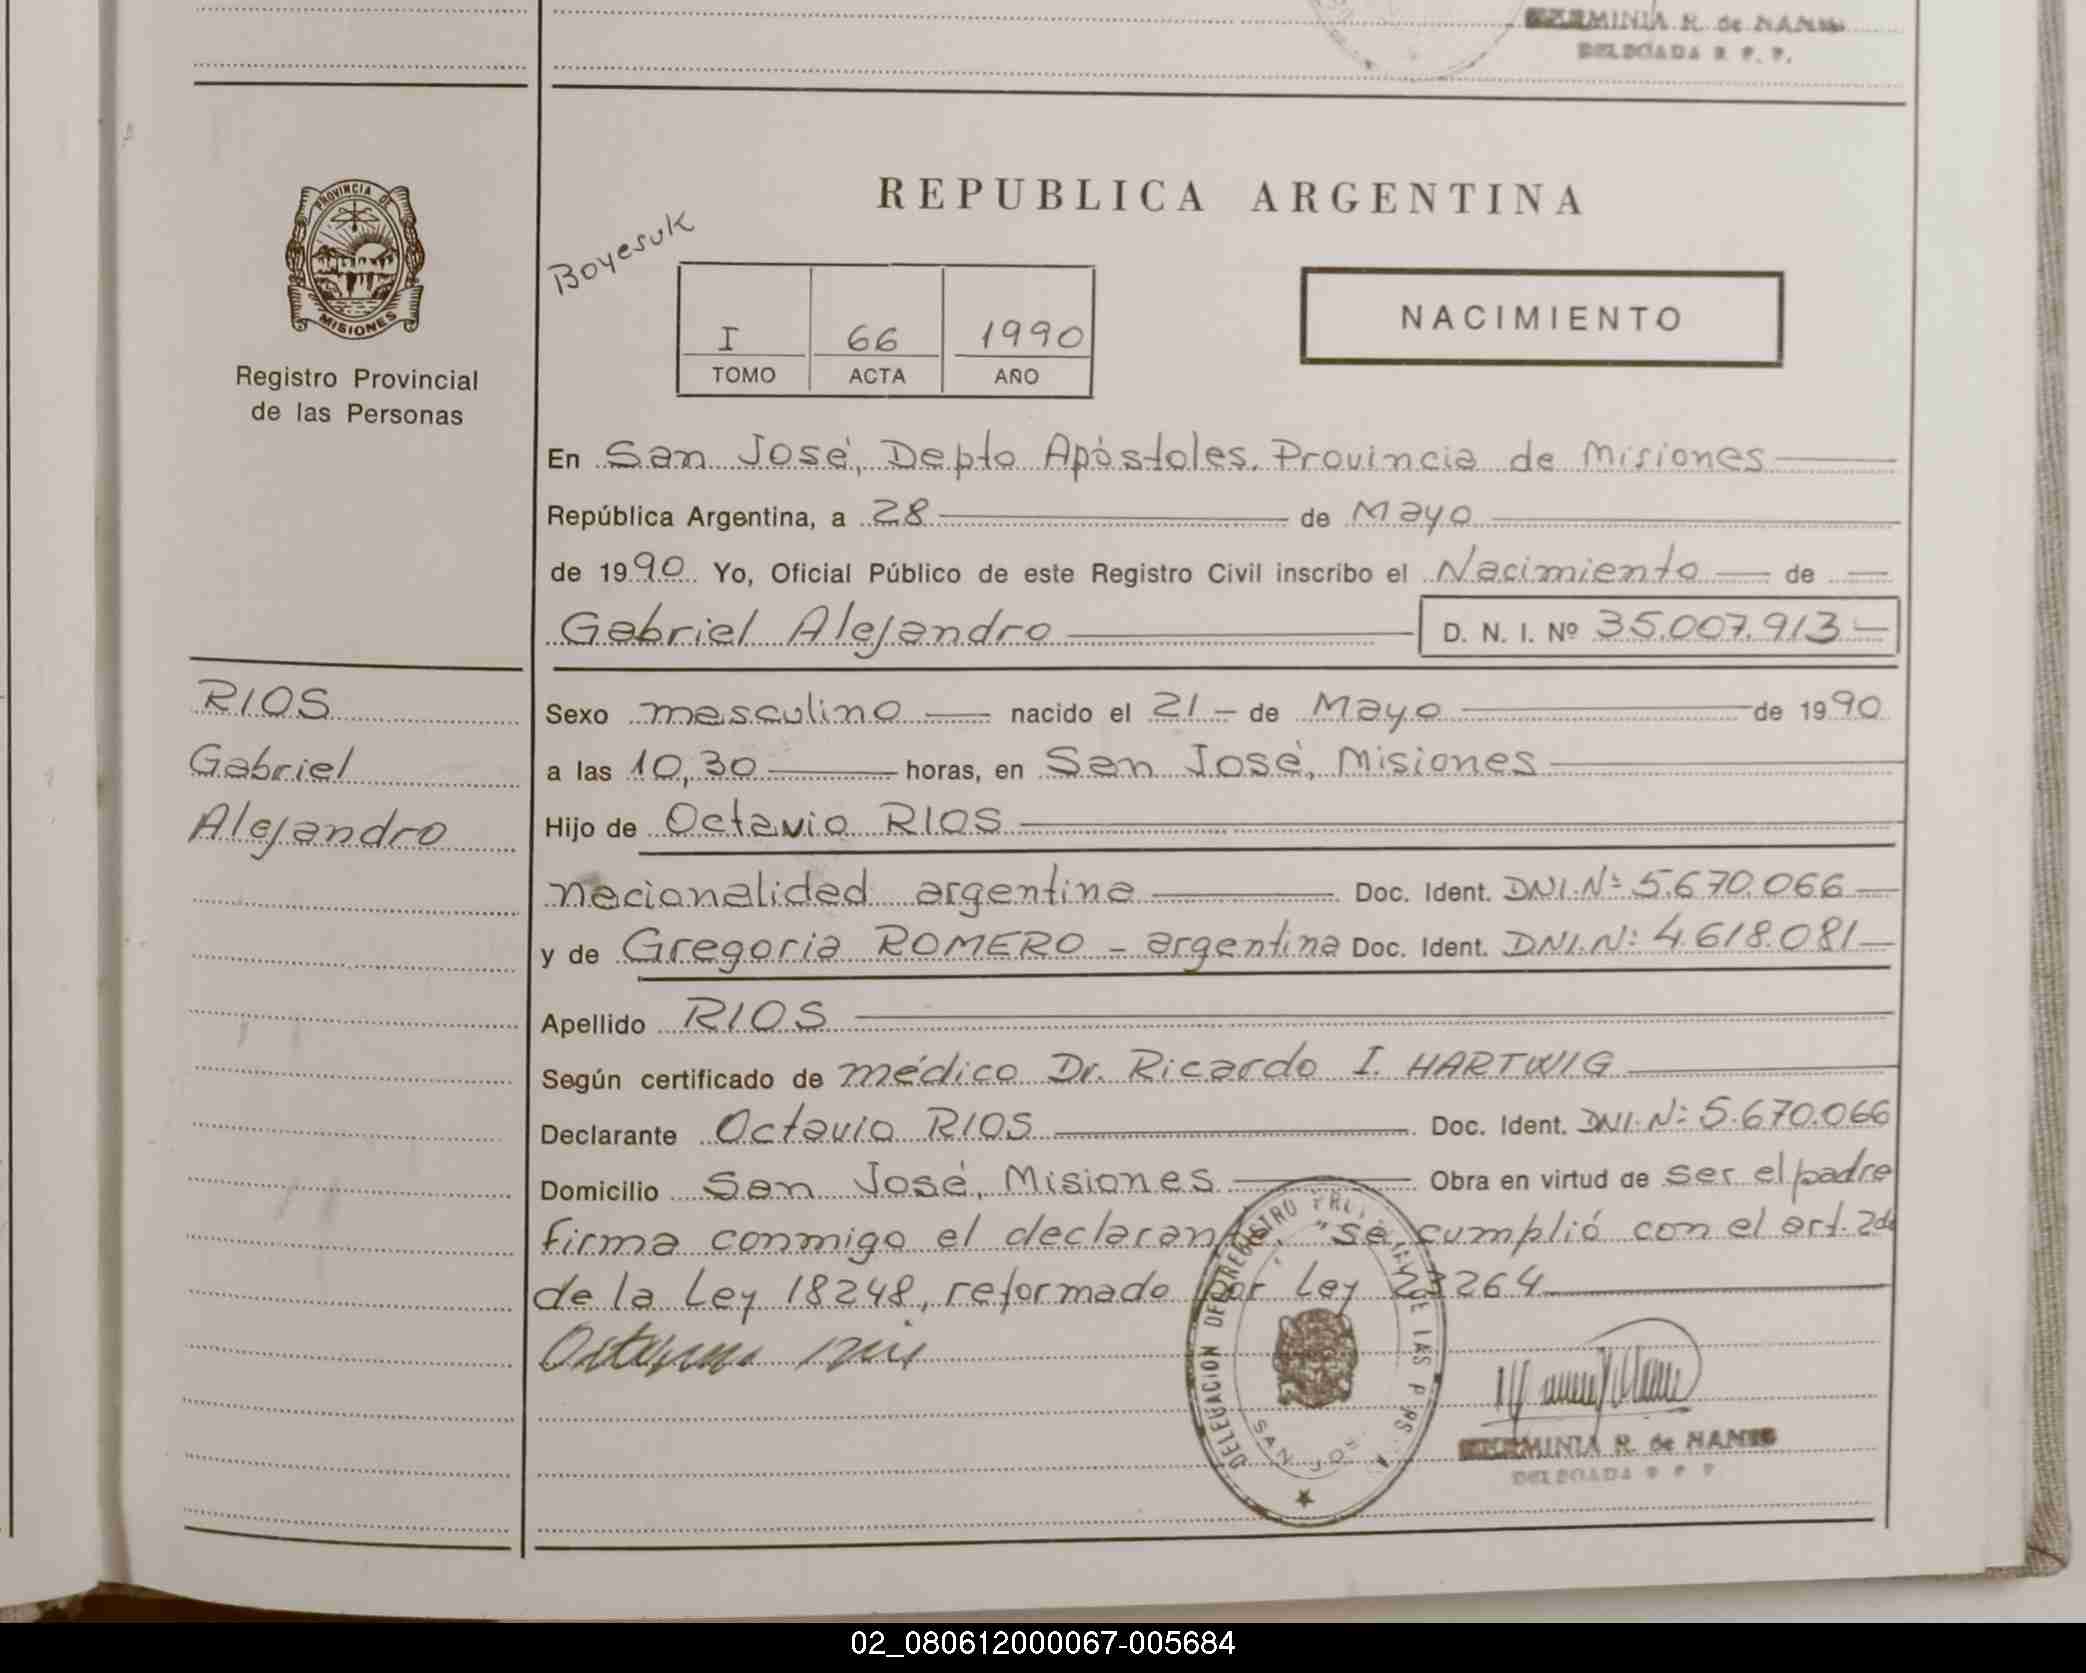 MINIA R. de NANIS
DELEGADA R. P. P.
PROVINCIA DE
MISIONES
Registro Provincial
de las Personas
REPUBLICA ARGENTINA
Boyesuk
I 66 1990
TOMO ACTA AÑO
NACIMIENTO
En San José, Depto Apóstoles. Provincia de Misiones
República Argentina, a 28 de Mayo
de 1990 Yo, Oficial Público de este Registro Civil inscribo el Nacimiento de
Gabriel Alejandro D. N. I. Nº 35.007.913
RIOS
Gabriel
Alejandro
Sexo masculino nacido el 21 de Mayo de 1990
a las 10,30 horas, en San José, Misiones
Hijo de Octavio RIOS
nacionalidad argentina Doc. Ident. DNI.Nº 5.670.066
y de Gregoria ROMERO - argentina Doc. Ident. DNI.Nº 4.618.081
Apellido RIOS
Según certificado de médico Dr. Ricardo I. HARTWIG
Declarante Octavio RIOS Doc. Ident. DNI.Nº 5.670.066
Domicilio San José, Misiones Obra en virtud de ser el padre
firma conmigo el declarante. "se cumplió con el art. 2do
de la Ley 18248, reformado por Ley 23264
DELEGACION DEL REGISTRO DE LAS
SAN JOSE
MINIA R. de NANIS
DELEGADA
02_080612000067-005684